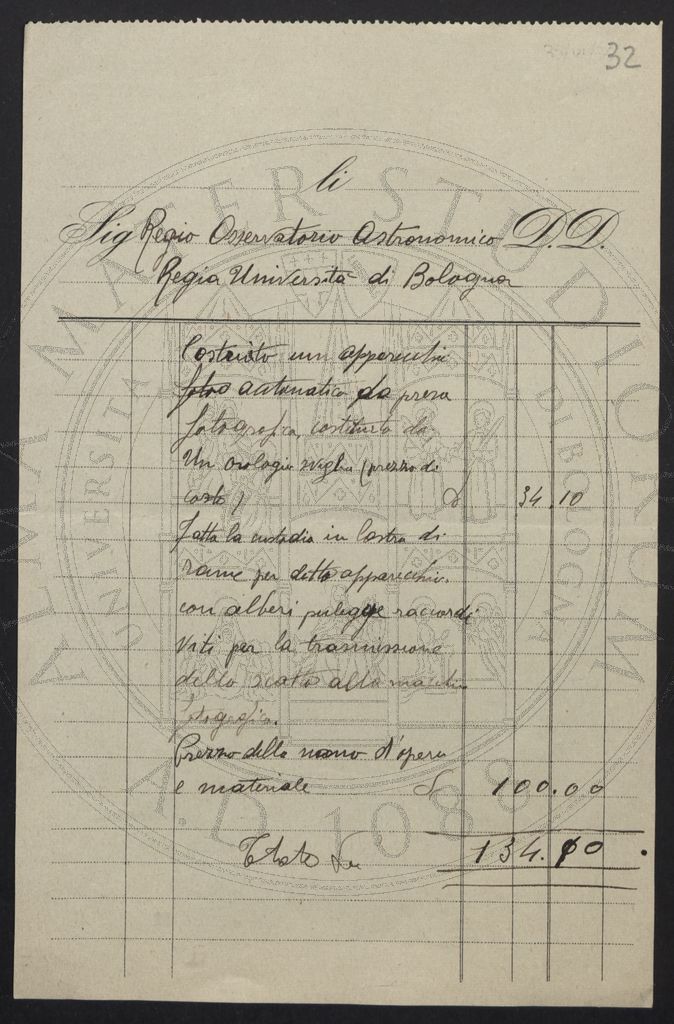 32
li
Sig Regio Osservatorio Astronomico D. D.
Regia Università di Bologna
Costruito un apparecchio
foto automatico da presa
fotografica, costituito da,
Un orologio sveglia (prezzo di
costo) £ 34.10
fatta la custodia in lastra di
rame per detto apparecchio.
con alberi pulegge raccordi
viti per la trasmissione
dello scatto alla macchina
fotografica.
Prezzo della mano d'opera
e materiale £ 100.00
Totale 134.10.
ALMA MATER STUDIORUM
UNIVERSITÀ DI BOLOGNA
A.D. 1088